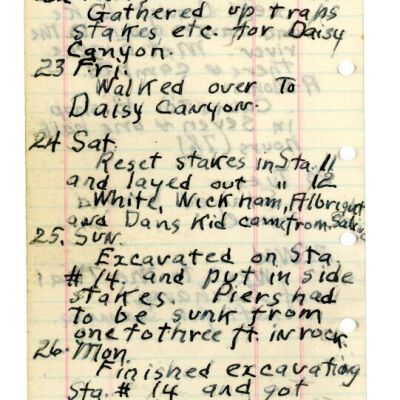 Gathered up traps
stakes etc. for Daisy
Canyon.
23 Fri.
Walked over To
Daisy Canyon.
24 Sat.
Reset stakes in Sta. 11
and layed out " 12
White, Wickham, Albright
and Dans Kid came from Salina
25. Sun.
Excavated on Sta.
# 14. and put in side
stakes. Piers had
to be sunk from
one to three ft. in rock.
26. Mon.
Finished excavating
Sta. # 14 and got